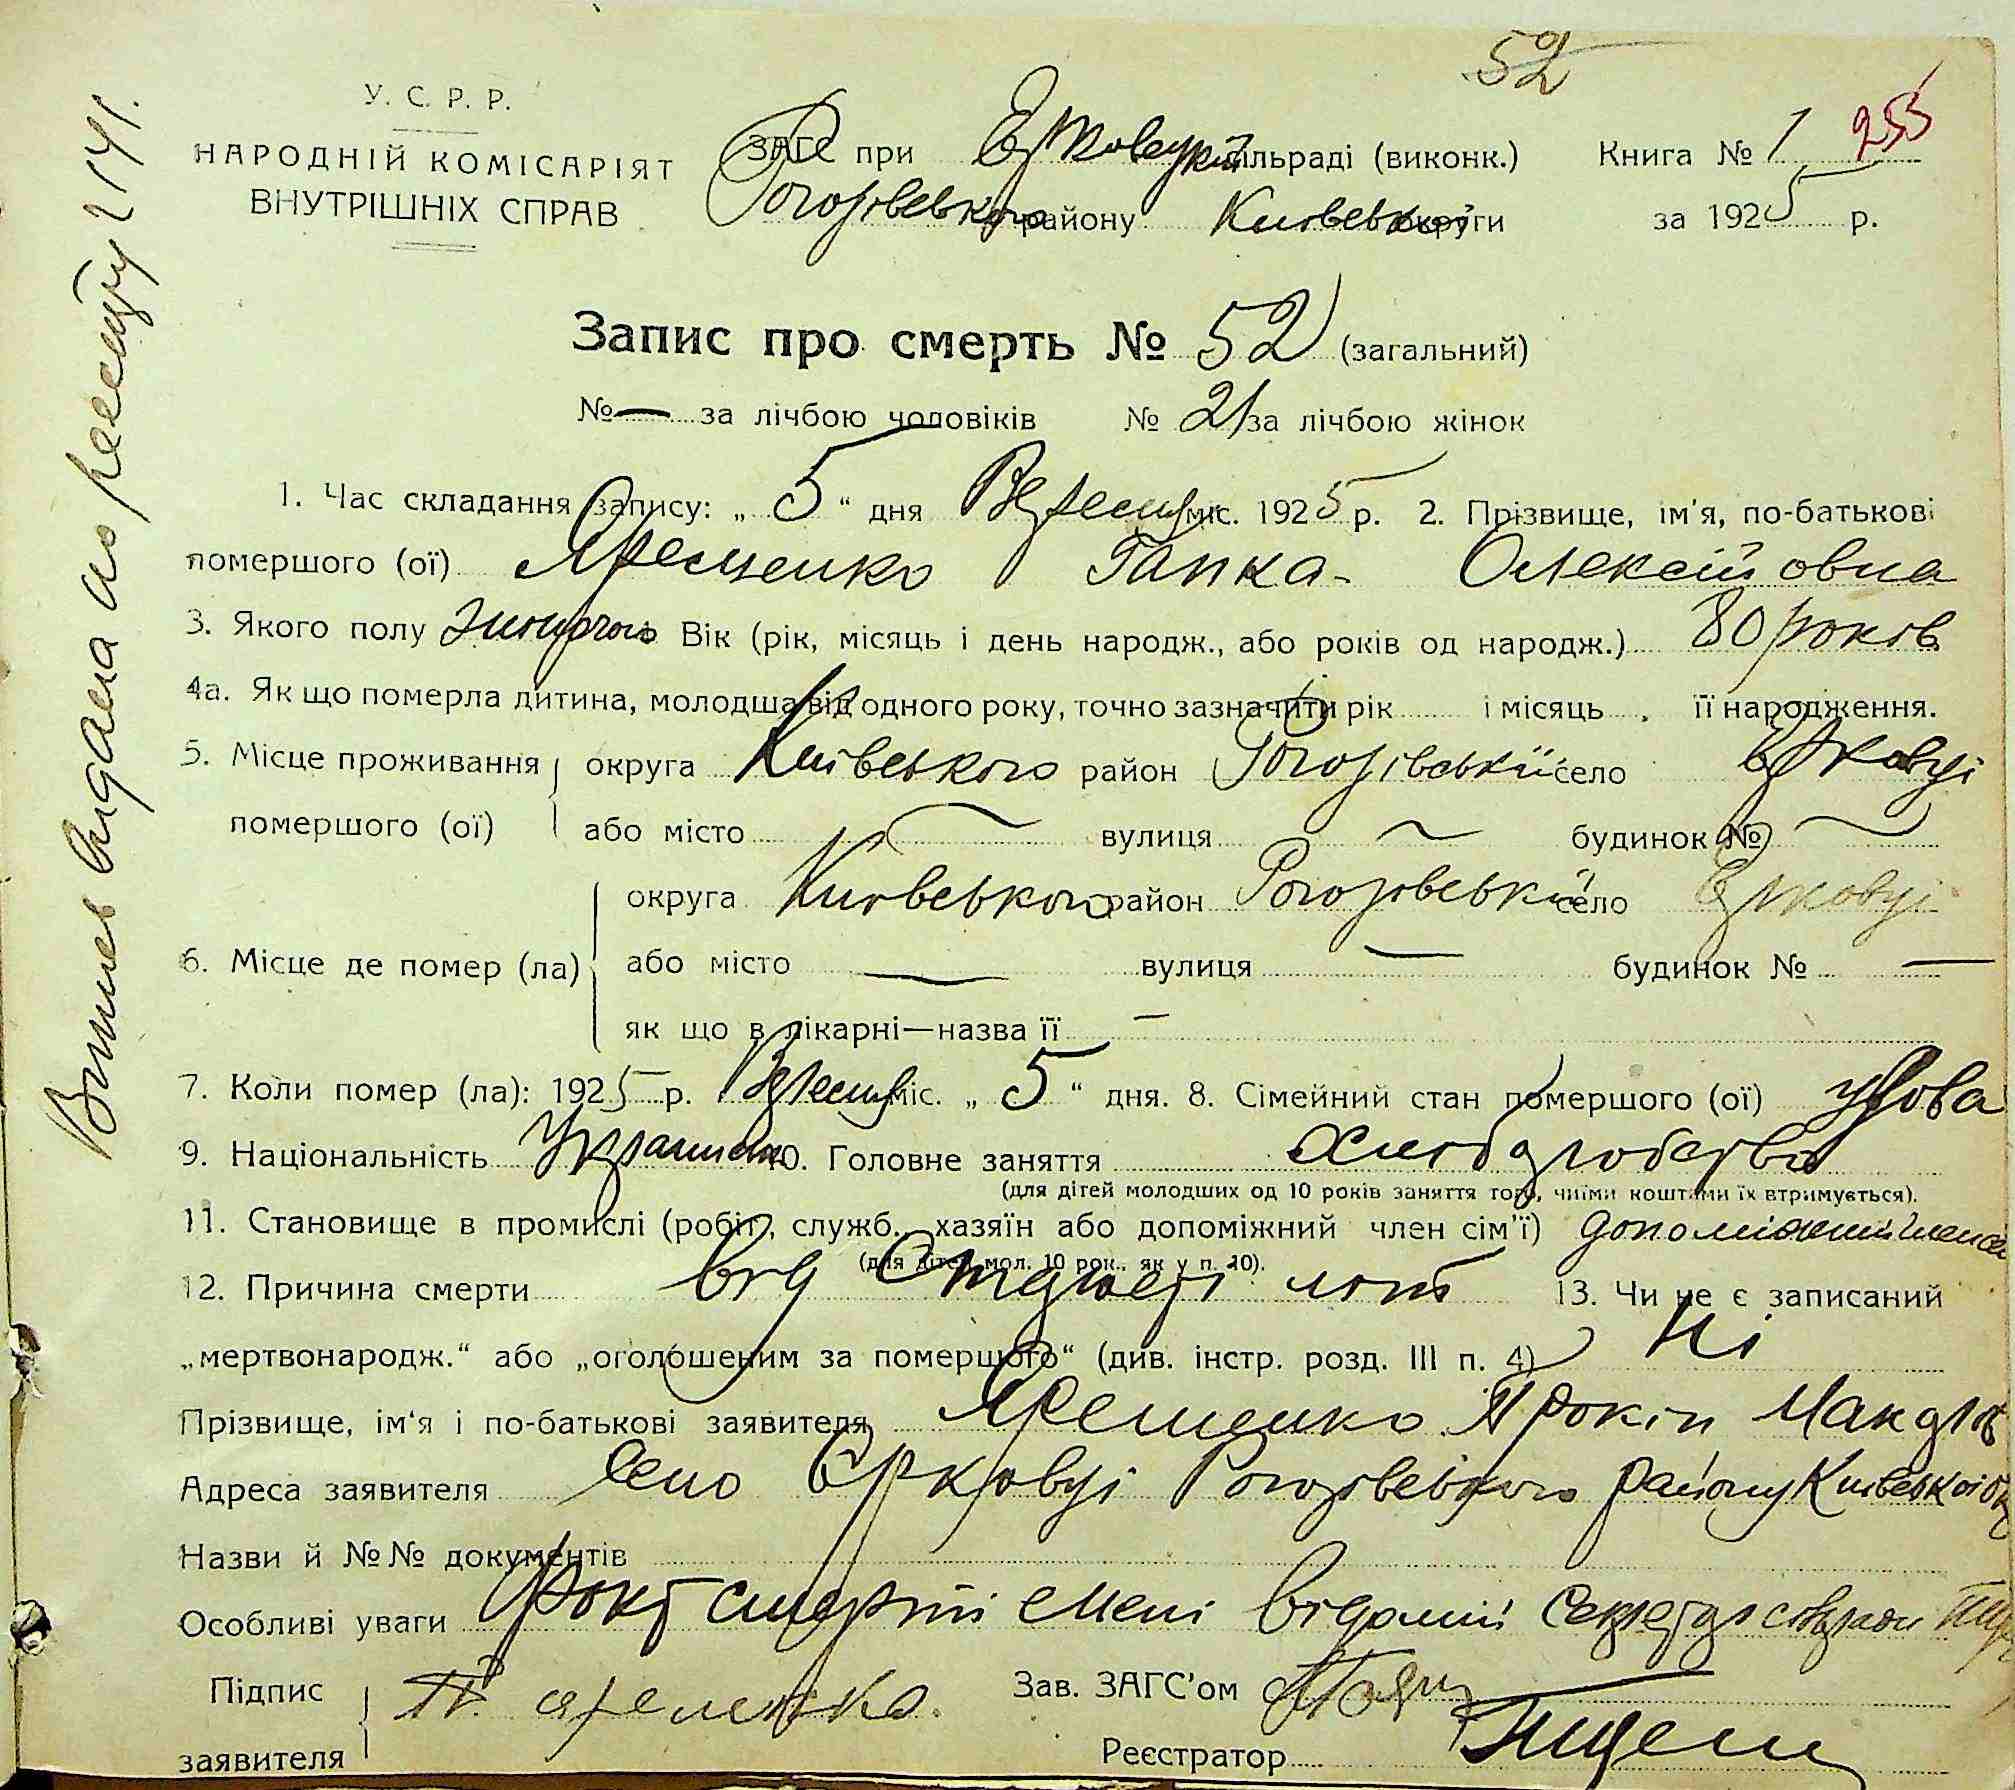 52
У. С. Р. Р.
НАРОДНІЙ КОМІСАРІЯТ
ВНУТРІШНІХ СПРАВ
ЗАГС при Єрковецкій сільраді (виконк.) Книга № 1 255
Рогозівського району Київської округи за 1925 р.
Запис про смерть № 52 (загальний)
№ — за лічбою чоловіків № 21 за лічбою жінок
1. Час складання запису: „ 5 “ дня Вересня міс. 1925 р. 2. Прізвище, ім'я, по-батькові
помершого (ої) Яременко Гапка Олексійовна
3. Якого полу жіночого Вік (рік, місяць і день народж., або років од народж.) 80 років
4а. Як що померла дитина, молодша від одного року, точно зазначити рік і місяць її народження.
5. Місце проживання округа Київського район Рогозівський село Єрковці
помершого (ої) або місто — вулиця — будинок № —
округа Київського район Рогозівський село Єрковці
6. Місце де помер (ла) або місто — вулиця — будинок № —
як що в лікарні—назва її —
7. Коли помер (ла): 1925 р. Вересня міс. „ 5 “ дня. 8. Сімейний стан помершого (ої) удова
9. Національність 10. Головне заняття хліборобство
(для дітей молодших од 10 років заняття того, чиїми коштами їх втримується).
11. Становище в промислі (робіт., служб., хазяїн або допоміжний член сім'ї) допоміжний член
(для дітей мол. 10 рок., як у п. 10).
12. Причина смерти від літ 13. Чи не є записаний
„мертвонародж.“ або „оголошеним за померщого“ (див. інстр. розд. III п. 4) Ні
Прізвище, ім'я і по-батькові заявителя Яременко Прокіп
Адреса заявителя Село Єрковці Рогозівського району Київської
Назви й №№ документів
Особливі уваги Факт смерти мені відомий Секретар сільради
Підпис П. Яременко. Зав. ЗАГС'ом
заявителя Реєстратор